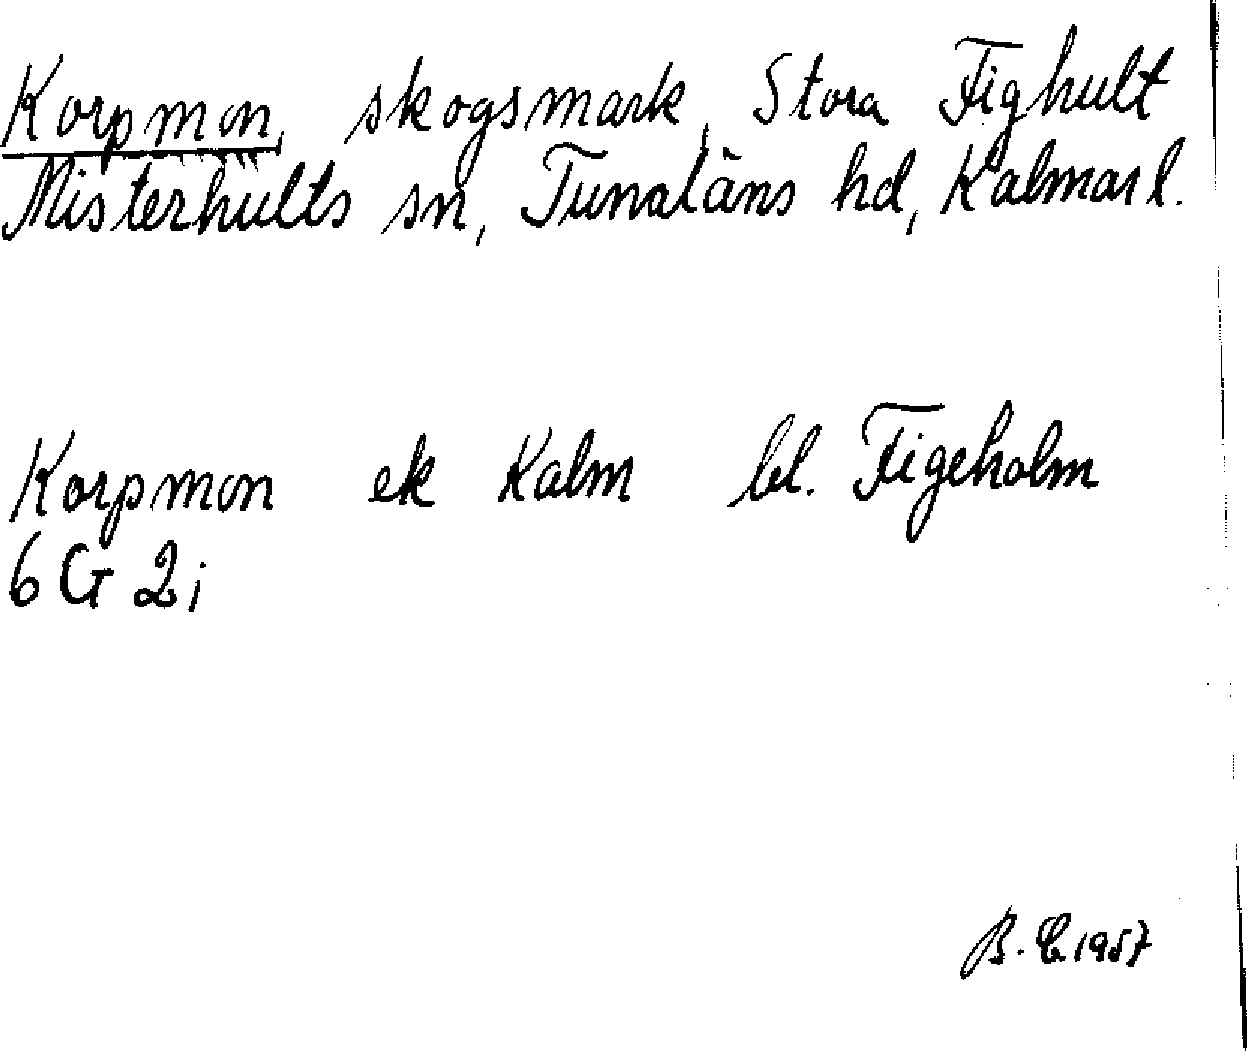 Korpmon, skogsmark, Stora Fighult
Misterhults sn, Tunaläns hd, Kalmar l.
Korpmon ek Kalm bl. Figeholm
6 G 2 i
B. E. 1957